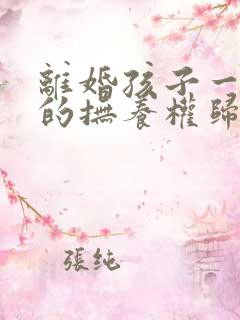 離婚孩子一
的撫養權歸
張純